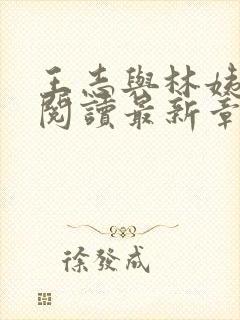 王志與林姨
閱讀最新章
徐發成